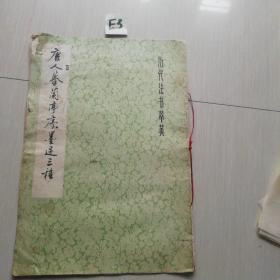 E3
历代法书萃英
唐人摹兰亭序墨迹三种